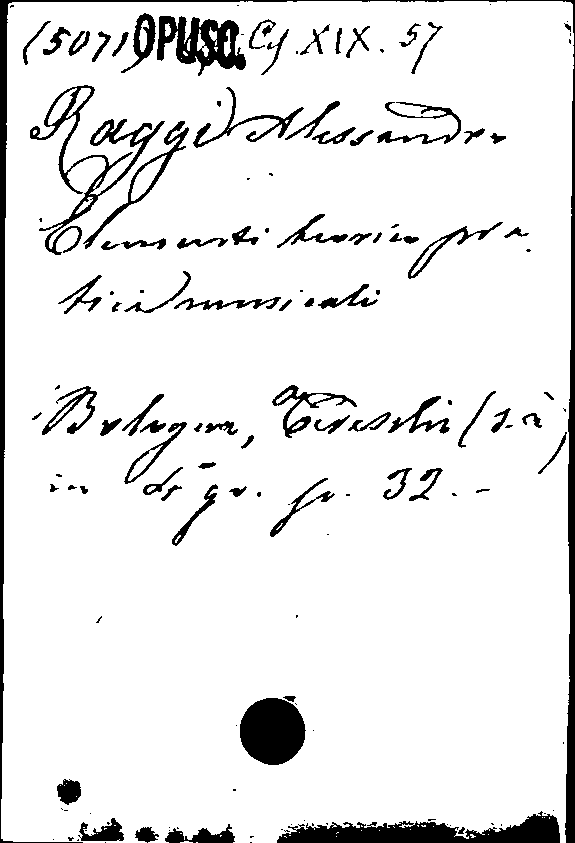 (5071) OPUSC. Cf. XIX. 57
Raggi Alessandro
Elementi teorico pra
tici musicali
Bologna, Tedeschi (s. a)
in 4° gr. fo. 32. -